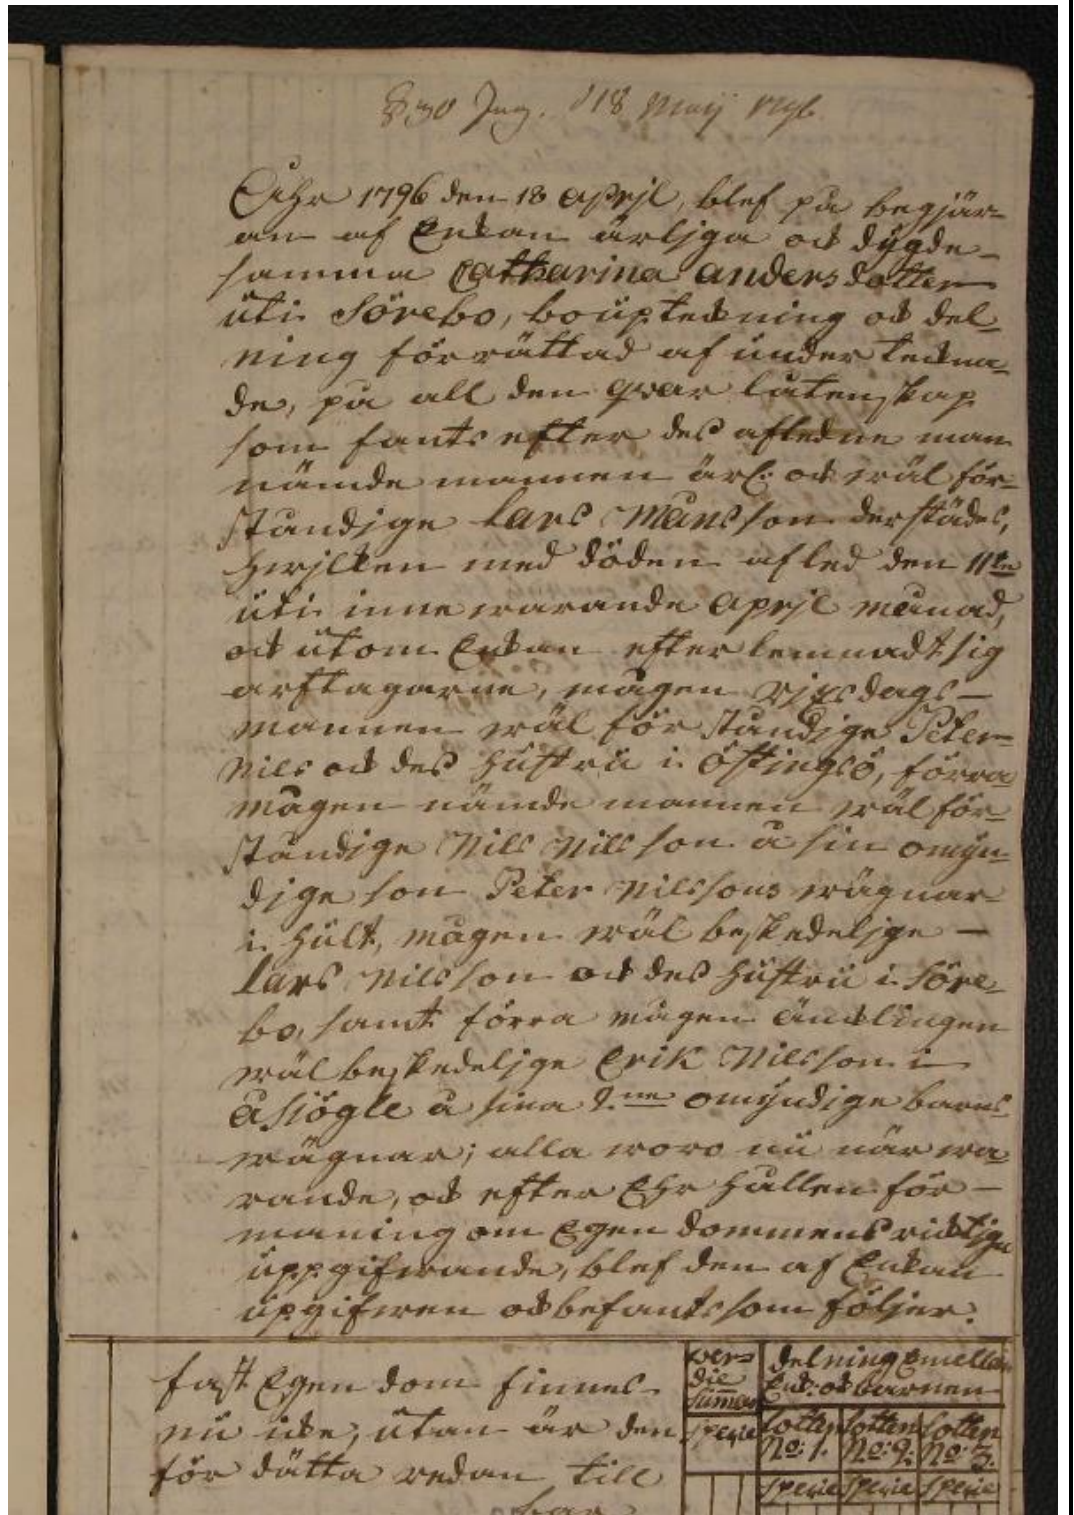 § 30 Ing. d 18 Maij 1796.
Åhr 1796 den 18 Aprjl, blef på begjär-
an af Enkan ärljga ock dygde-
samma Catharina andersdotter
uti Sörebo, boupteckning ock del-
ning förrättad af under teckna-
de, på all den qvar låtenskap
som fants efter des afledne man
nämde mannen ärl: ock wäl för-
ståndjge Lars Månsson derstädes,
hwjlken med döden afled den 11te
uti innewarande Aprjl månad,
ock utom Enkan efterlemnadt sig
arftagarne, mågen Rjksdags-
mannen wäl förståndjge Peter
Nils ock des hustru i Östingsö, förra
mågen nämde mannen wälför-
ståndjge Nils Nilsson å sin omyn-
djge son Peter Nilssons wägnar
i Hult, mågen wäl beskedeljge -
Lars Nilsson ock des hustru i Söre-
bo, samt förra mågen Äncklingen
wälbeskedeljge Erik Nilsson i
Åsjögle å sina 2ne omyndige barns
wägnar; alla woro nu närwa-
rande, ock efter Ehrhållen för-
maning om Egendommens ricktjga
uppgifwande, blef den af Enkan
upgifwen ock befants som följer.
fast Egendom finnes
nu icke, utan är den
för dätta redan till
bar
wer-
die
summa
specie
delning Emellan
Enk: ock barnen
Lotten Lotten Lotten
No: 1. No: 2: No: 3.
specie specie specie